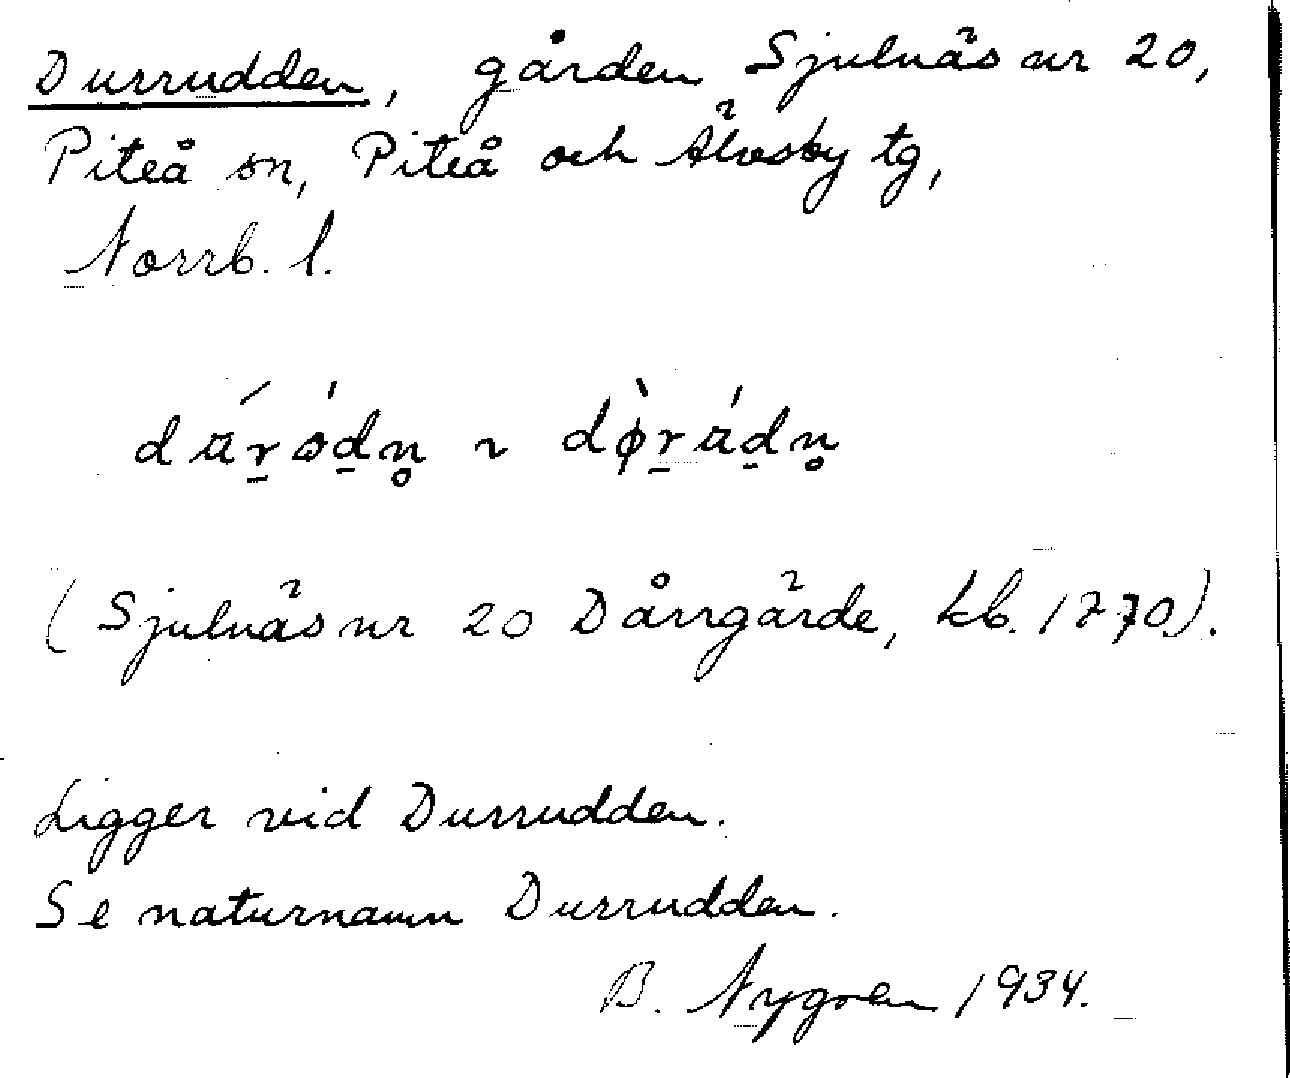 Durrudden, gården Sjulnäs nr 20,
Piteå sn, Piteå och Älvsby tg,
Norrb. l.
(Sjulnäs nr 20 Dårrgärde, kb. 1770).
Ligger vid Durrudden.
Se naturnamn Durrudden.
B. Nygren 1934.